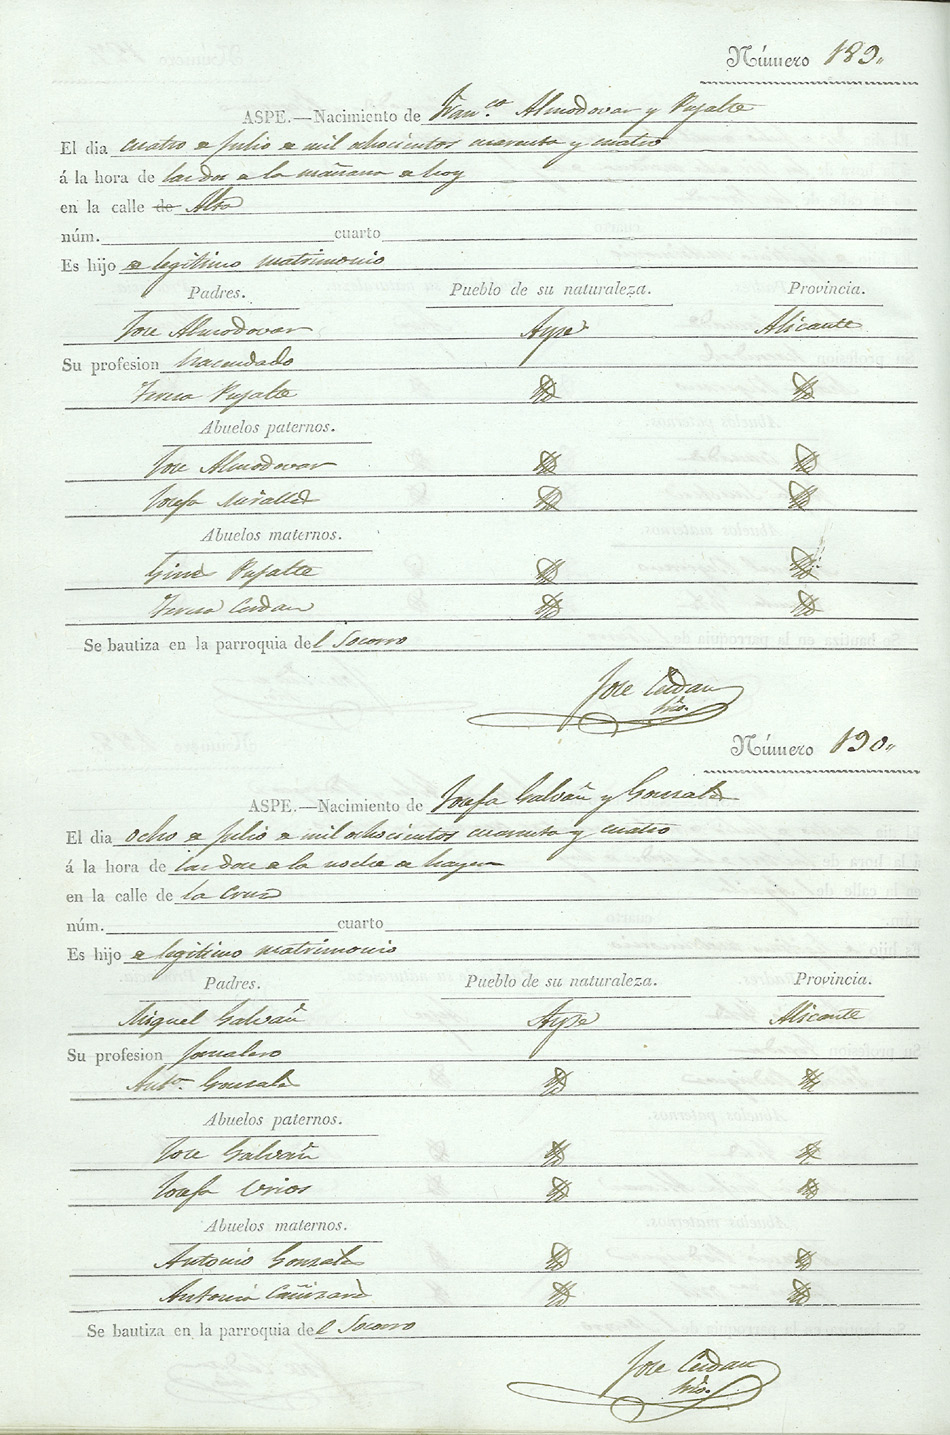 Número 189.
ASPE.—Nacimiento de Fran.co Almodovar y Pujalte
El dia cuatro de Julio de mil ochocientos cuarenta y cuatro
á la hora de las dos de la mañana de hoy
en la calle de Alta
núm. cuarto
Es hijo de legitimo matrimonio
Padres. Pueblo de su naturaleza. Provincia.
Jose Almodovar Aspe Alicante
Su profesion hacendado
Teresa Pujalte Yd Yd
Abuelos paternos.
Jose Almodovar Yd Yd
Josefa Miralles Yd Yd
Abuelos maternos.
Gines Pujalte Yd Yd
Teresa Cerdan Yd Yd
Se bautiza en la parroquia del Socorro
Jose Cerdan
Srio.
Número 190.
ASPE.—Nacimiento de Josefa Galvañ y Gonzalez
El dia ocho de Julio de mil ochocientos cuarenta y cuatro
á la hora de las doce de la noche de hayer
en la calle de la Cruz
núm. cuarto
Es hijo de legitimo matrimonio
Padres. Pueblo de su naturaleza. Provincia.
Miguel Galvañ Aspe Alicante
Su profesion jornalero
Anta. Gonzalez Yd Yd
Abuelos paternos.
Jose Galvañ Yd Yd
Josefa Urios Yd Yd
Abuelos maternos.
Antonio Gonzalez Yd Yd
Antonia Cañizares Yd Yd
Se bautiza en la parroquia del Socorro
Jose Cerdan
Srio.